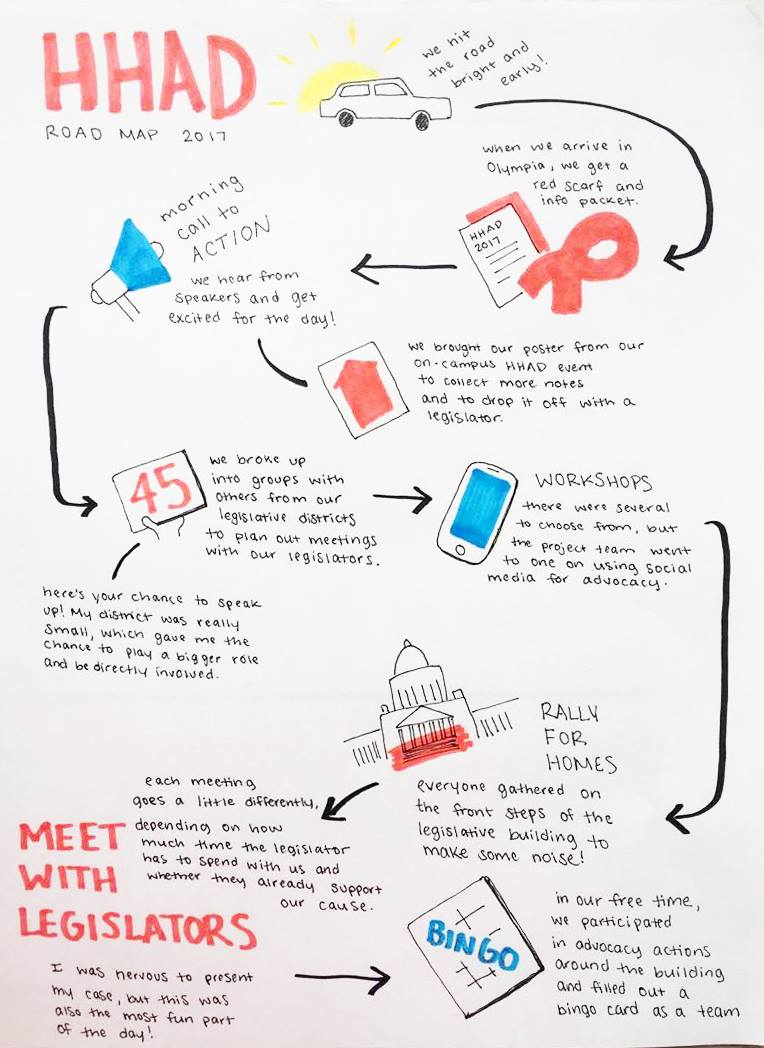 HHAD
ROAD MAP 2017
we hit
the road
bright and
early!
when we arrive in
Olympia, we get a
red scarf and
info packet.
HHAD
2017
morning
call to
ACTION
we hear from
speakers and get
excited for the day!
we brought our poster from our
on-campus HHAD event
to collect more notes
and to drop it off with a
legislator.
45
we broke up
into groups with
others from our
legislative districts
to plan out meetings
with our legislators.
WORKSHOPS
there were several
to choose from, but
the project team went
to one on using social
media for advocacy.
here's your chance to speak
up! My district was really
small, which gave me the
chance to play a bigger role
and be directly involved.
RALLY
FOR
HOMES
everyone gathered on
the front steps of the
legislative building to
make some noise!
MEET
WITH
LEGISLATORS
each meeting
goes a little differently,
depending on how
much time the legislator
has to spend with us and
whether they already support
our cause.
I was nervous to present
my case, but this was
also the most fun part
of the day!
BINGO
in our free time,
we participated
in advocacy actions
around the building
and filled out a
bingo card as a team